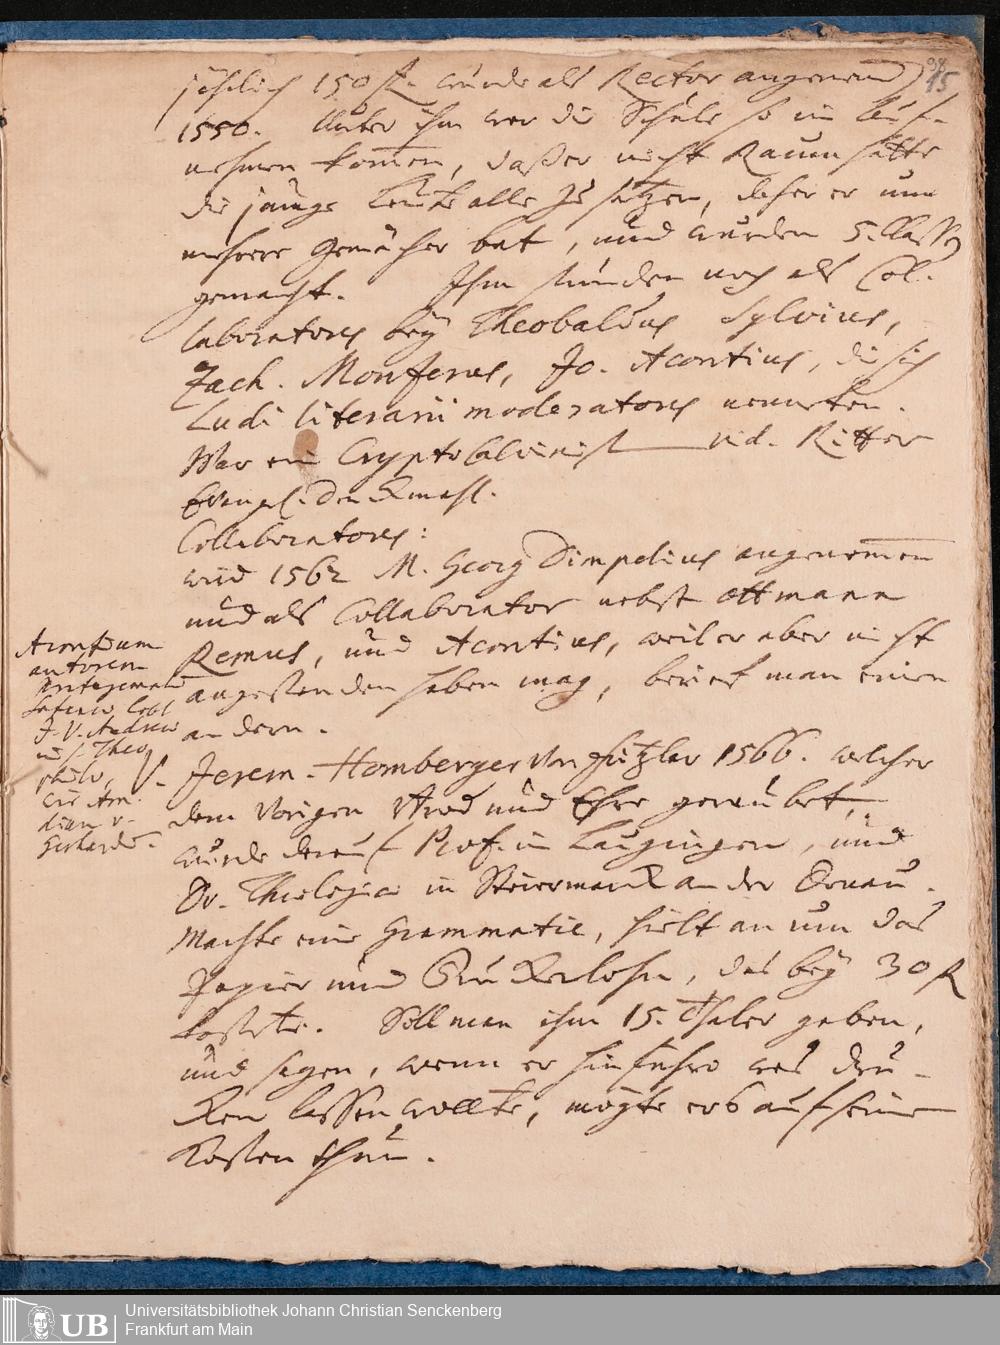 jährlich 150 fl. wurde als Rector angenomen
95
1550. Unter ihm war die Schule so in Auf-
nehmen kom̄en, daß er nicht Raum hatte
die junge Leute alle zu setzen, daher er um
mehrere Gemächer bat, und wurden 5. Classen
gemacht. Ihm stunden noch als Col-
laboratores bey Theobaldus Sylvius,
Zach. Monferus, Jo. Acontius, die sich
Ludi literarii moderatores nennten.
War ein CryptoCalvinist vid. Ritter
Evangel. Denckmahl.
Collaboratores:
wird 1562 M. Georg Dimpelius angenom̄en
und als Collaborator nebst Ottmann
Remus, und Acontius, weil er aber nicht
angestanden haben mag, berief man einen
andern.
Acontium
autorem
J. V. Andreä
in s. Theo
philo,
Gerhardo.
Jerem. Homberger von Fritzlar 1566. welcher
dem Vorigen Amd und Ehre geraubet,
wurde darauf Prof. in Laugingen, und
Dr. Theologiae in Steiermarck an der Drau.
Machte eine Grammatic, hielt an um das
Papier und Druckerlohn, das bey 30 fl
kostete. Soll man ihm 15. Thaler geben,
und sagen, wenn er hinfuhro was dru-
cken lassen wollte, mögte ers auf seine
Kosten thun.
UB
Universitätsbibliothek Johann Christian Senckenberg
Frankfurt am Main